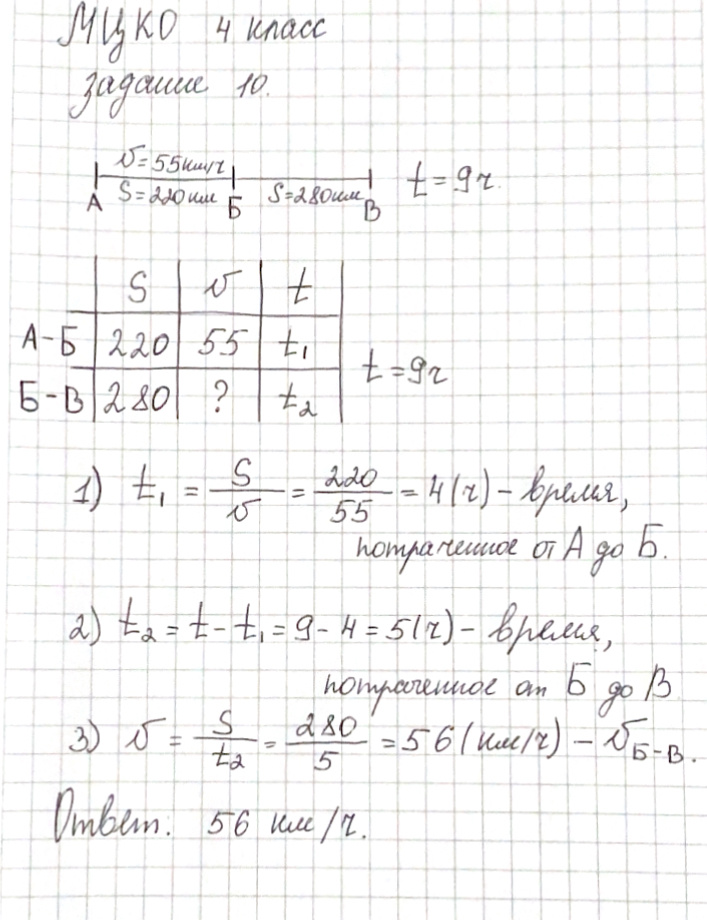 МЦКО 4 класс
задание 10.
v=55км/ч
А S=220км Б S=280км В t=9ч.
S v t
А-Б 220 55 t₁
Б-В 280 ? t₂
t=9ч
1) t₁ = S/v = 220/55 = 4(ч) - время,
потраченное от А до Б.
2) t₂ = t - t₁ = 9 - 4 = 5(ч) - время,
потраченное от Б до В
3) v = S/t₂ = 280/5 = 56(км/ч) - v Б-В.
Ответ: 56 км/ч.